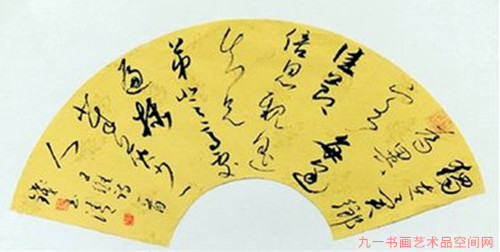 獨在異鄉
為異客
每逢佳節
倍思親遙
知兄
弟登高處
遍插
茱萸少一
人
王維詩一首
九一书画艺术品空间网